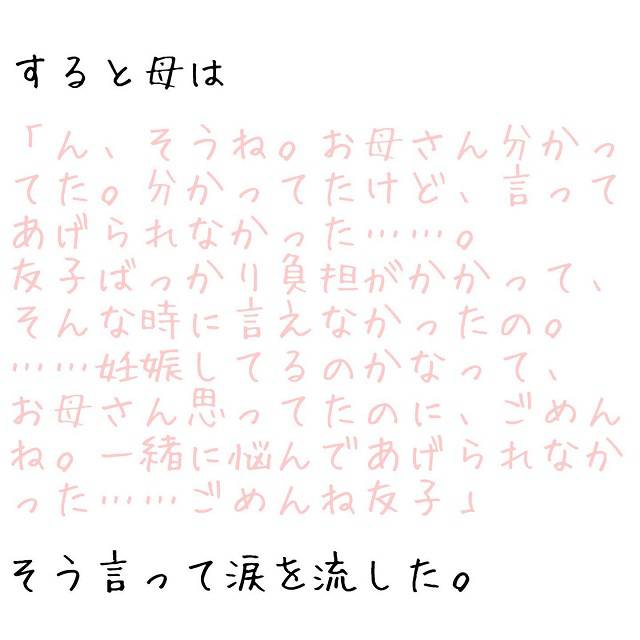 すると母は
「ん、そうね。お母さん分かっ
てた。分かってたけど、言って
あげられなかった……。
友子ばっかり負担がかかって、
そんな時に言えなかったの。
……妊娠してるのかなって、
お母さん思ってたのに、ごめん
ね。一緒に悩んであげられなか
った……ごめんね友子」
そう言って涙を流した。